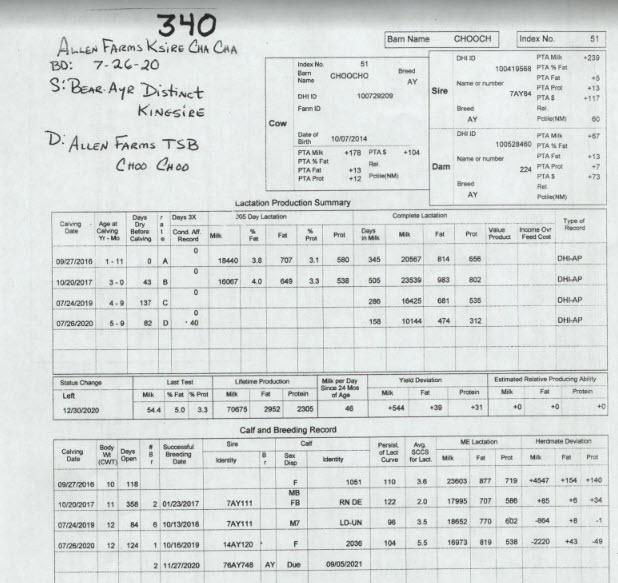 340
ALLEN FARMS KSIRE CHA CHA
BD: 7-26-20
S: BEAR-AYR DISTINCT
KINGSIRE
D: ALLEN FARMS TSB
CHOO CHOO
Barn Name CHOOCH Index No. 51
Index No. 51
Barn Name CHOOCHO Breed AY
DHI ID 100729209
Farm ID
Cow
Date of Birth 10/07/2014
PTA Milk +178 PTA $ +104
PTA % Fat Rel.
PTA Fat +13 Pctile(NM)
PTA Prot +12
Sire
DHI ID 100419568
Name or number 7AY84
Breed AY
PTA Milk +239
PTA % Fat
PTA Fat +5
PTA Prot +13
PTA $ +117
Rel.
Pctile(NM) 60
Dam
DHI ID 100528460
Name or number 224
Breed AY
PTA Milk +67
PTA % Fat
PTA Fat +13
PTA Prot +7
PTA $ +73
Rel.
Pctile(NM)
Lactation Production Summary
Calving Date Age at Calving Yr - Mo Days Dry Before Calving rate Days 3X Cond. Aff. Record 305 Day Lactation Milk % Fat Fat % Prot Prot Complete Lactation Days in Milk Milk Fat Prot Value Product Income Ovr Feed Cost Type of Record
09/27/2016 1 - 11 0 A 0 18440 3.8 707 3.1 580 345 20567 814 656 DHI-AP
10/20/2017 3 - 0 43 B 0 16067 4.0 649 3.3 538 505 23539 983 802 DHI-AP
07/24/2019 4 - 9 137 C 0 286 16425 681 535 DHI-AP
07/26/2020 5 - 9 82 D 0 40 158 10144 474 312 DHI-AP
Status Change Last Test Lifetime Production Milk per Day Since 24 Mos of Age Yield Deviation Estimated Relative Producing Ability
Left Milk % Fat % Prot Milk Fat Protein Milk Fat Protein Milk Fat Protein
12/30/2020 54.4 5.0 3.3 70675 2952 2305 46 +544 +39 +31 +0 +0 +0
Calf and Breeding Record
Calving Date Body Wt (CWT) Days Open # Br Successful Breeding Date Sire Identity Br Calf Sex Disp Identity Persist. of Lact Curve Avg. SCCS for Lact. ME Lactation Milk Fat Prot Herdmate Deviation Milk Fat Prot
09/27/2016 10 118 F 1051 110 3.6 23603 877 719 +4547 +154 +140
10/20/2017 11 358 2 01/23/2017 7AY111 MB FB RN DE 122 2.0 17995 707 586 +85 +6 +34
07/24/2019 12 84 6 10/13/2018 7AY111 M7 LD-UN 96 3.5 18652 770 602 -864 +8 -1
07/26/2020 12 124 1 10/16/2019 14AY120 F 2036 104 5.5 16973 819 538 -2220 +43 -49
2 11/27/2020 76AY748 AY Due 09/05/2021